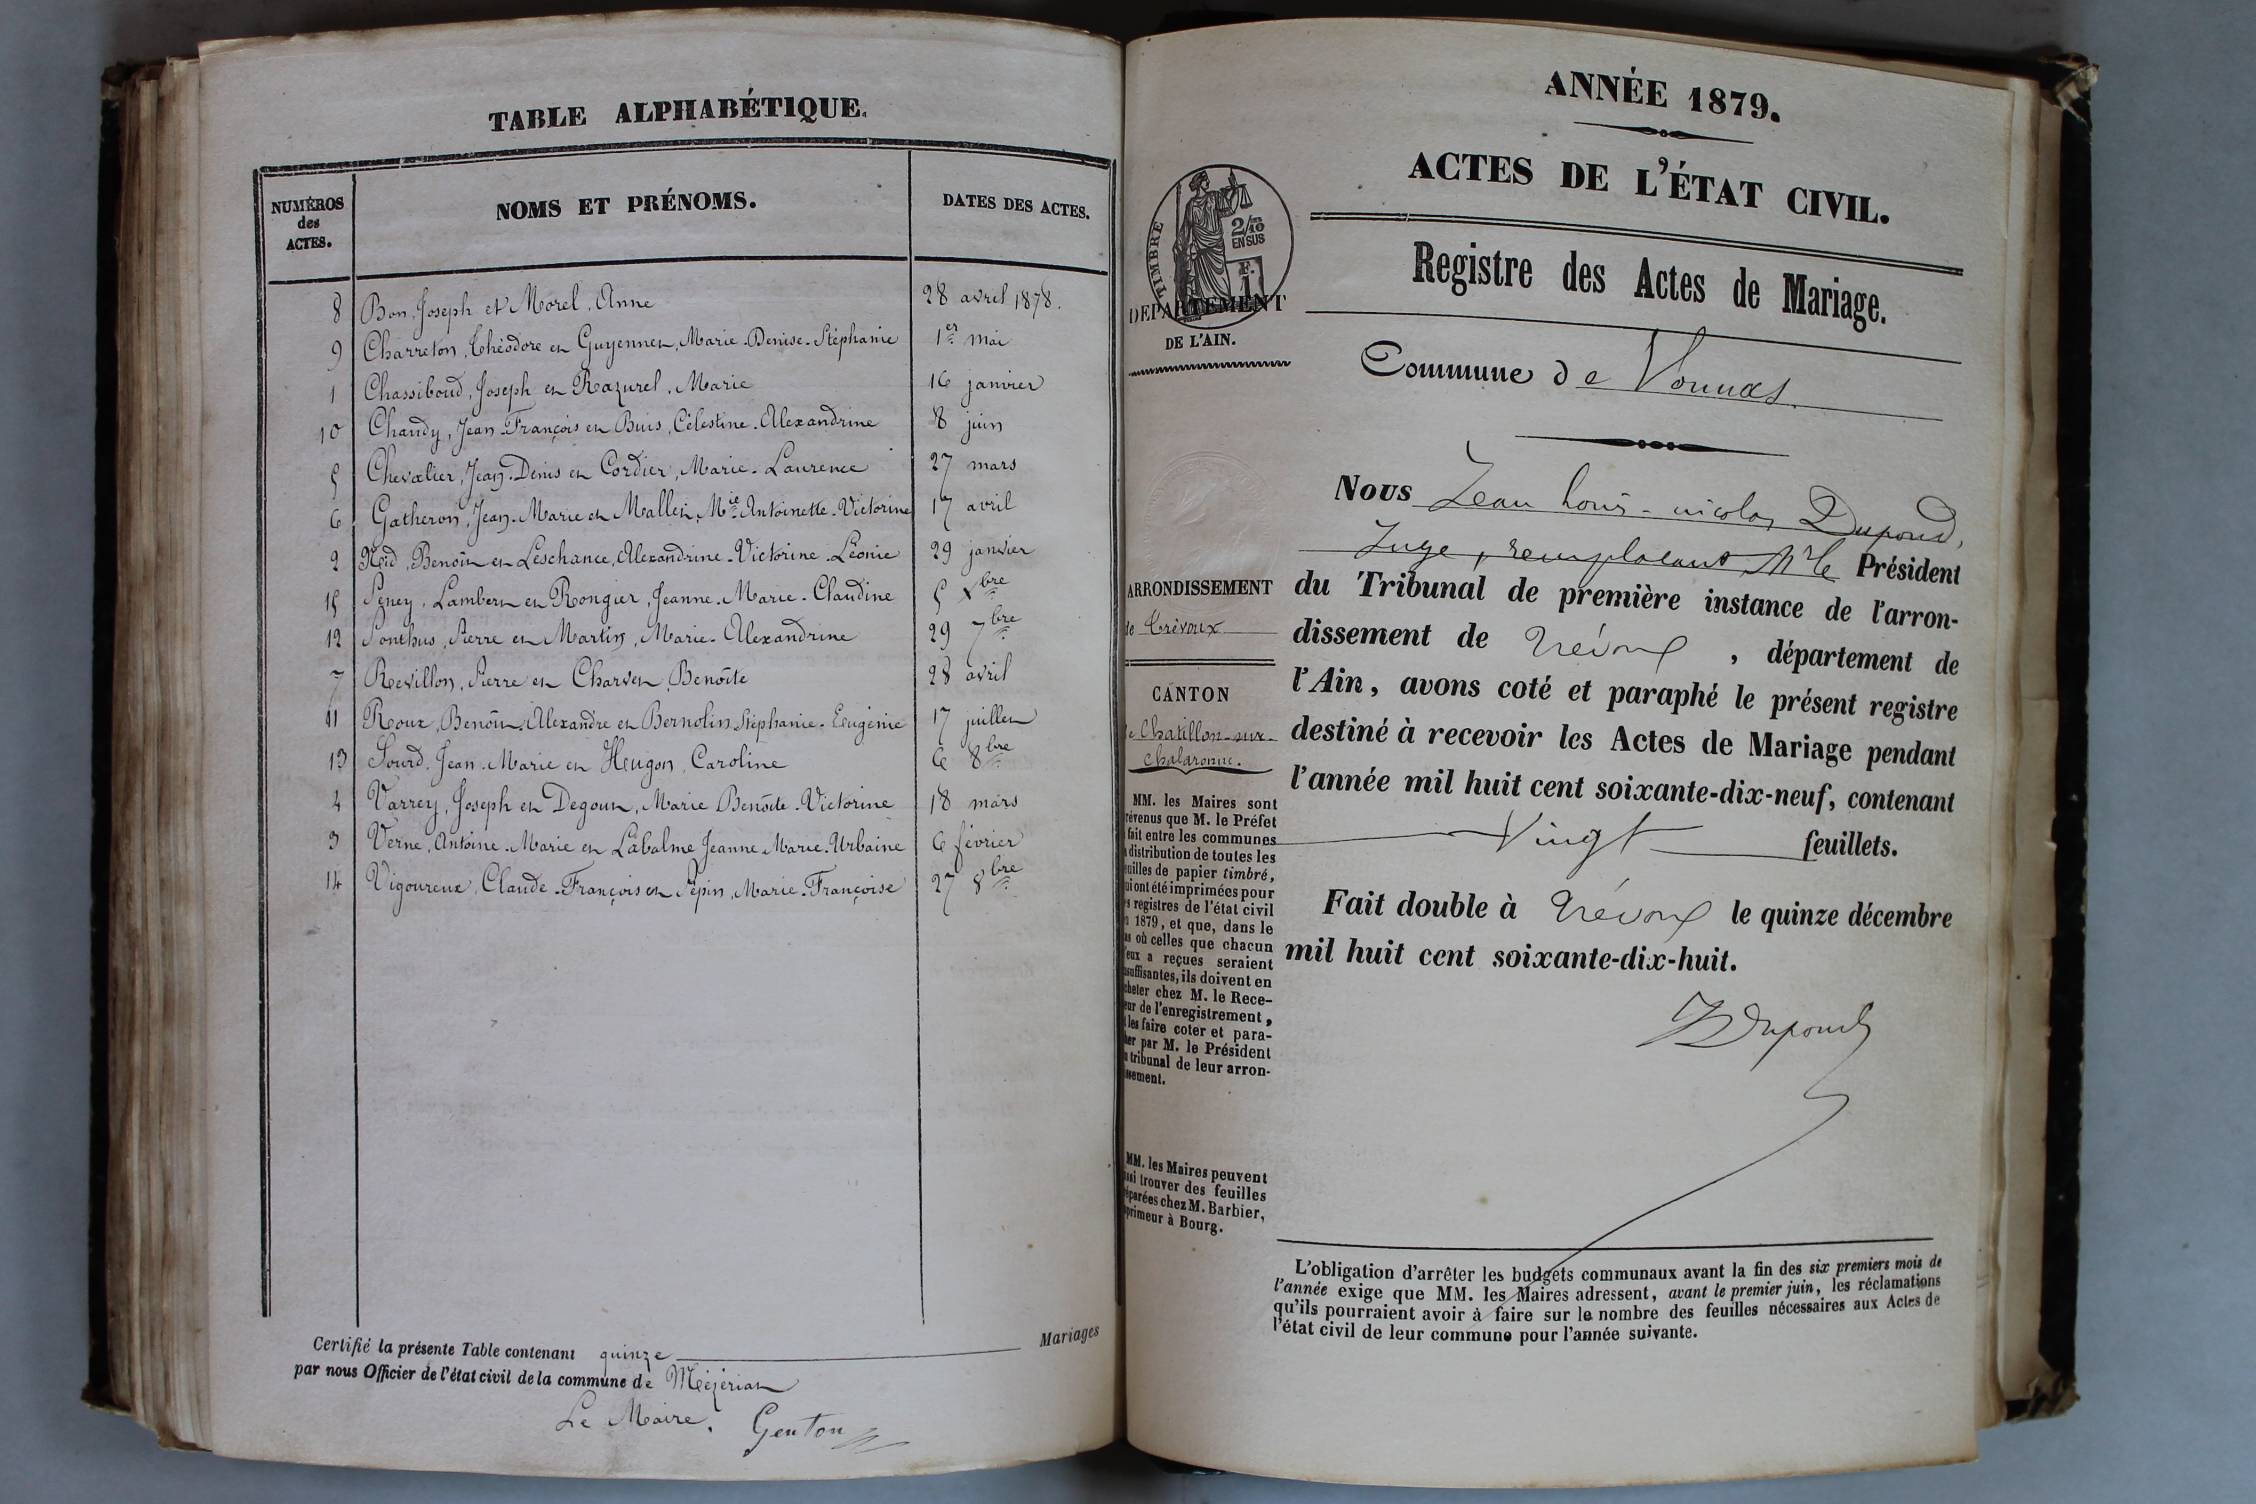 TABLE ALPHABÉTIQUE.
NUMÉROS
des
ACTES.
NOMS ET PRÉNOMS.
DATES DES ACTES.
8 Bon, Joseph et Morel, Anne 28 avril 1878.
9 Charreton, Théodore et Guyennet, Marie-Denise-Stéphanie 1er mai
1 Chassiboud, Joseph et Razurel, Marie 16 janvier
10 Chaudy, Jean-François et Buis, Célestine-Alexandrine 8 juin
5 Chevalier, Jean-Denis et Cordier, Marie-Laurence 27 mars
6 Gatheron, Jean-Marie et Mallet, Mie-Antoinette-Victorine 17 avril
2 Benoit et Leschance, Alexandrine-Victorine-Léonie 29 janvier
15 Peney, Lambert et Rongier, Jeanne-Marie-Claudine 5 Xbre
12 Ponthus, Pierre et Martin, Marie-Alexandrine 29 7bre
7 Revillon, Pierre et Charvet, Benoîte 28 avril
11 Roux, Benoît-Alexandre et Bernolin, Stéphanie-Eugénie 17 juillet
13 Sourd, Jean-Marie et Hugon, Caroline 6 8bre
4 Varrey, Joseph et Degout, Marie Benoîte-Victorine 18 mars
3 Verne, Antoine-Marie et Labalme Jeanne Marie-Urbaine 6 février
14 Vigoureux, Claude-François et Pépin, Marie-Françoise 27 8bre
Certifié la présente Table contenant quinze Mariages
par nous Officier de l'état civil de la commune de Mézériat
Le Maire, Genton
ANNÉE 1879.
ACTES DE L'ÉTAT CIVIL.
Registre des Actes de Mariage.
Commune de Vonnas
TIMBRE
2/10
EN SUS
F.
1
DEPARTEMENT
DE L'AIN.
ARRONDISSEMENT
de Trévoux
CANTON
de Chatillon-sur-
Chalaronne.
MM. les Maires sont
révenus que M. le Préfet
fait entre les communes
distribution de toutes les
uilles de papier timbré,
ui ont été imprimées pour
s registres de l'état civil
1879, et que, dans le
as où celles que chacun
eux a reçues seraient
suffisantes, ils doivent en
cheter chez M. le Rece-
eur de l'enregistrement,
les faire coter et para-
her par M. le Président
tribunal de leur arron-
ssement.
MM. les Maires peuvent
ssi trouver des feuilles
éparées chez M. Barbier,
primeur à Bourg.
Nous Jean Louis-nicolas Dupond,
Juge, remplacant Mr le Président
du Tribunal de première instance de l'arron-
dissement de Trévoux, département de
l'Ain, avons coté et paraphé le présent registre
destiné à recevoir les Actes de Mariage pendant
l'année mil huit cent soixante-dix-neuf, contenant
Vingt feuillets.
Fait double à Trévoux le quinze décembre
mil huit cent soixante-dix-huit.
Dupond
L'obligation d'arrêter les budgets communaux avant la fin des six premiers mois de
l'année exige que MM. les Maires adressent, avant le premier juin, les réclamations
qu'ils pourraient avoir à faire sur le nombre des feuilles nécessaires aux Actes de
l'état civil de leur commune pour l'année suivante.